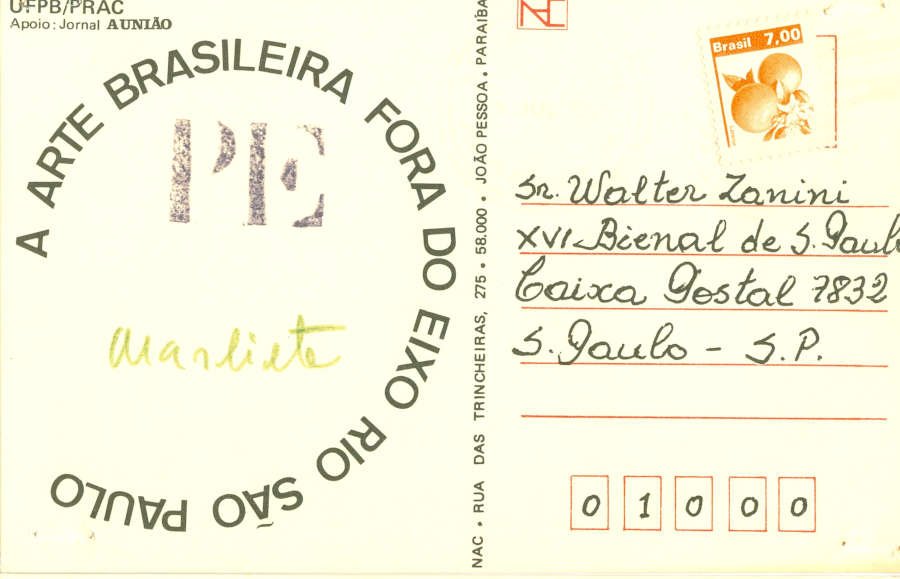 UFPB/PRAC
Apoio: Jornal A UNIÃO
A ARTE BRASILEIRA FORA DO EIXO RIO SÃO PAULO
PE
Marliete
NAC • RUA DAS TRINCHEIRAS, 275 • 58.000 • JOÃO PESSOA • PARAÍBA
Brasil 7,00
Sr. Walter Zanini
XVI Bienal de S. Paulo
Caixa Postal 7832
S. Paulo - S.P.
0 1 0 0 0